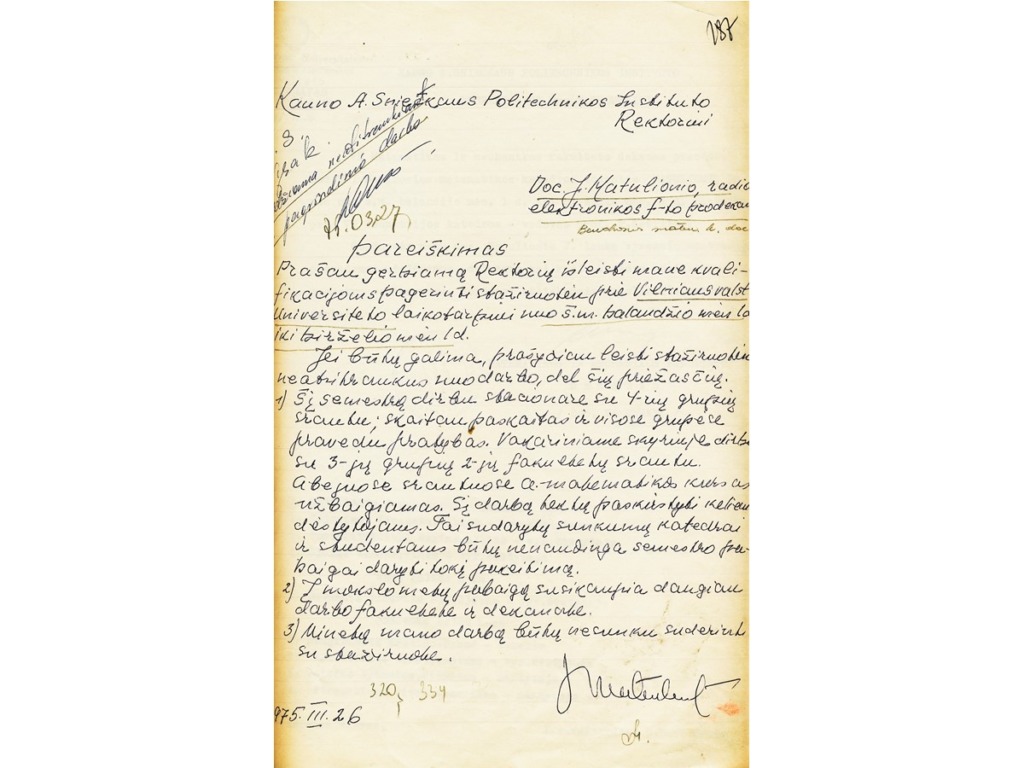 187
Kauno A. Sniečkaus Politechnikos Instituto
Rektoriui
Doc. J. Matulionio, radio
elektronikos f-to prodekan
Bendrosios matem. k. doc
neatitraukiant
pagrindinio darbo
75.03.27
pareiškimas
Prašau gerbiamą Rektorių išleisti mane kvali-
fikacijoms pagerinti stažiruotėn prie Vilniaus valst
Universiteto laikotarpiui nuo š.m. balandžio mėn 1d
iki birželio mėn 1d.
Jei būtų galima, prašyčiau leisti stažiruotėn
neatsitraukus nuo darbo, dėl šių priežasčių.
1) Šį semestrą dirbu stacionare su 4-rių grupių
srautu; skaitau paskaitas ir visose grupėse
pravedu pratybas. Vakariniame skyriuje dirbu
su 3-jų grupių 2-jų fakultetų srautu.
Abejuose srautuose a. matematikos kursas
užbaigiamas. Šį darbą tektų paskirstyti keliem
dėstytojams. Tai sudarytų sunkumų katedrai
ir studentams būtų nenaudinga semestro pa-
baigai daryti tokį pakeitimą.
2) Į mokslo metų pabaigą susikaupia daugiau
darbo fakultete ir dekanate.
3) Minėtą mano darbą būtų nesunku suderinti
su stažiruote.
320, 334
975.III.26